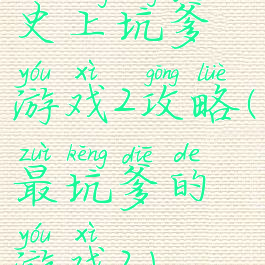 史上坑爹
yóu xì gōng lüè
游戏2攻略(
zuì kēng diē de
最坑爹的
yóu xì
游戏2)